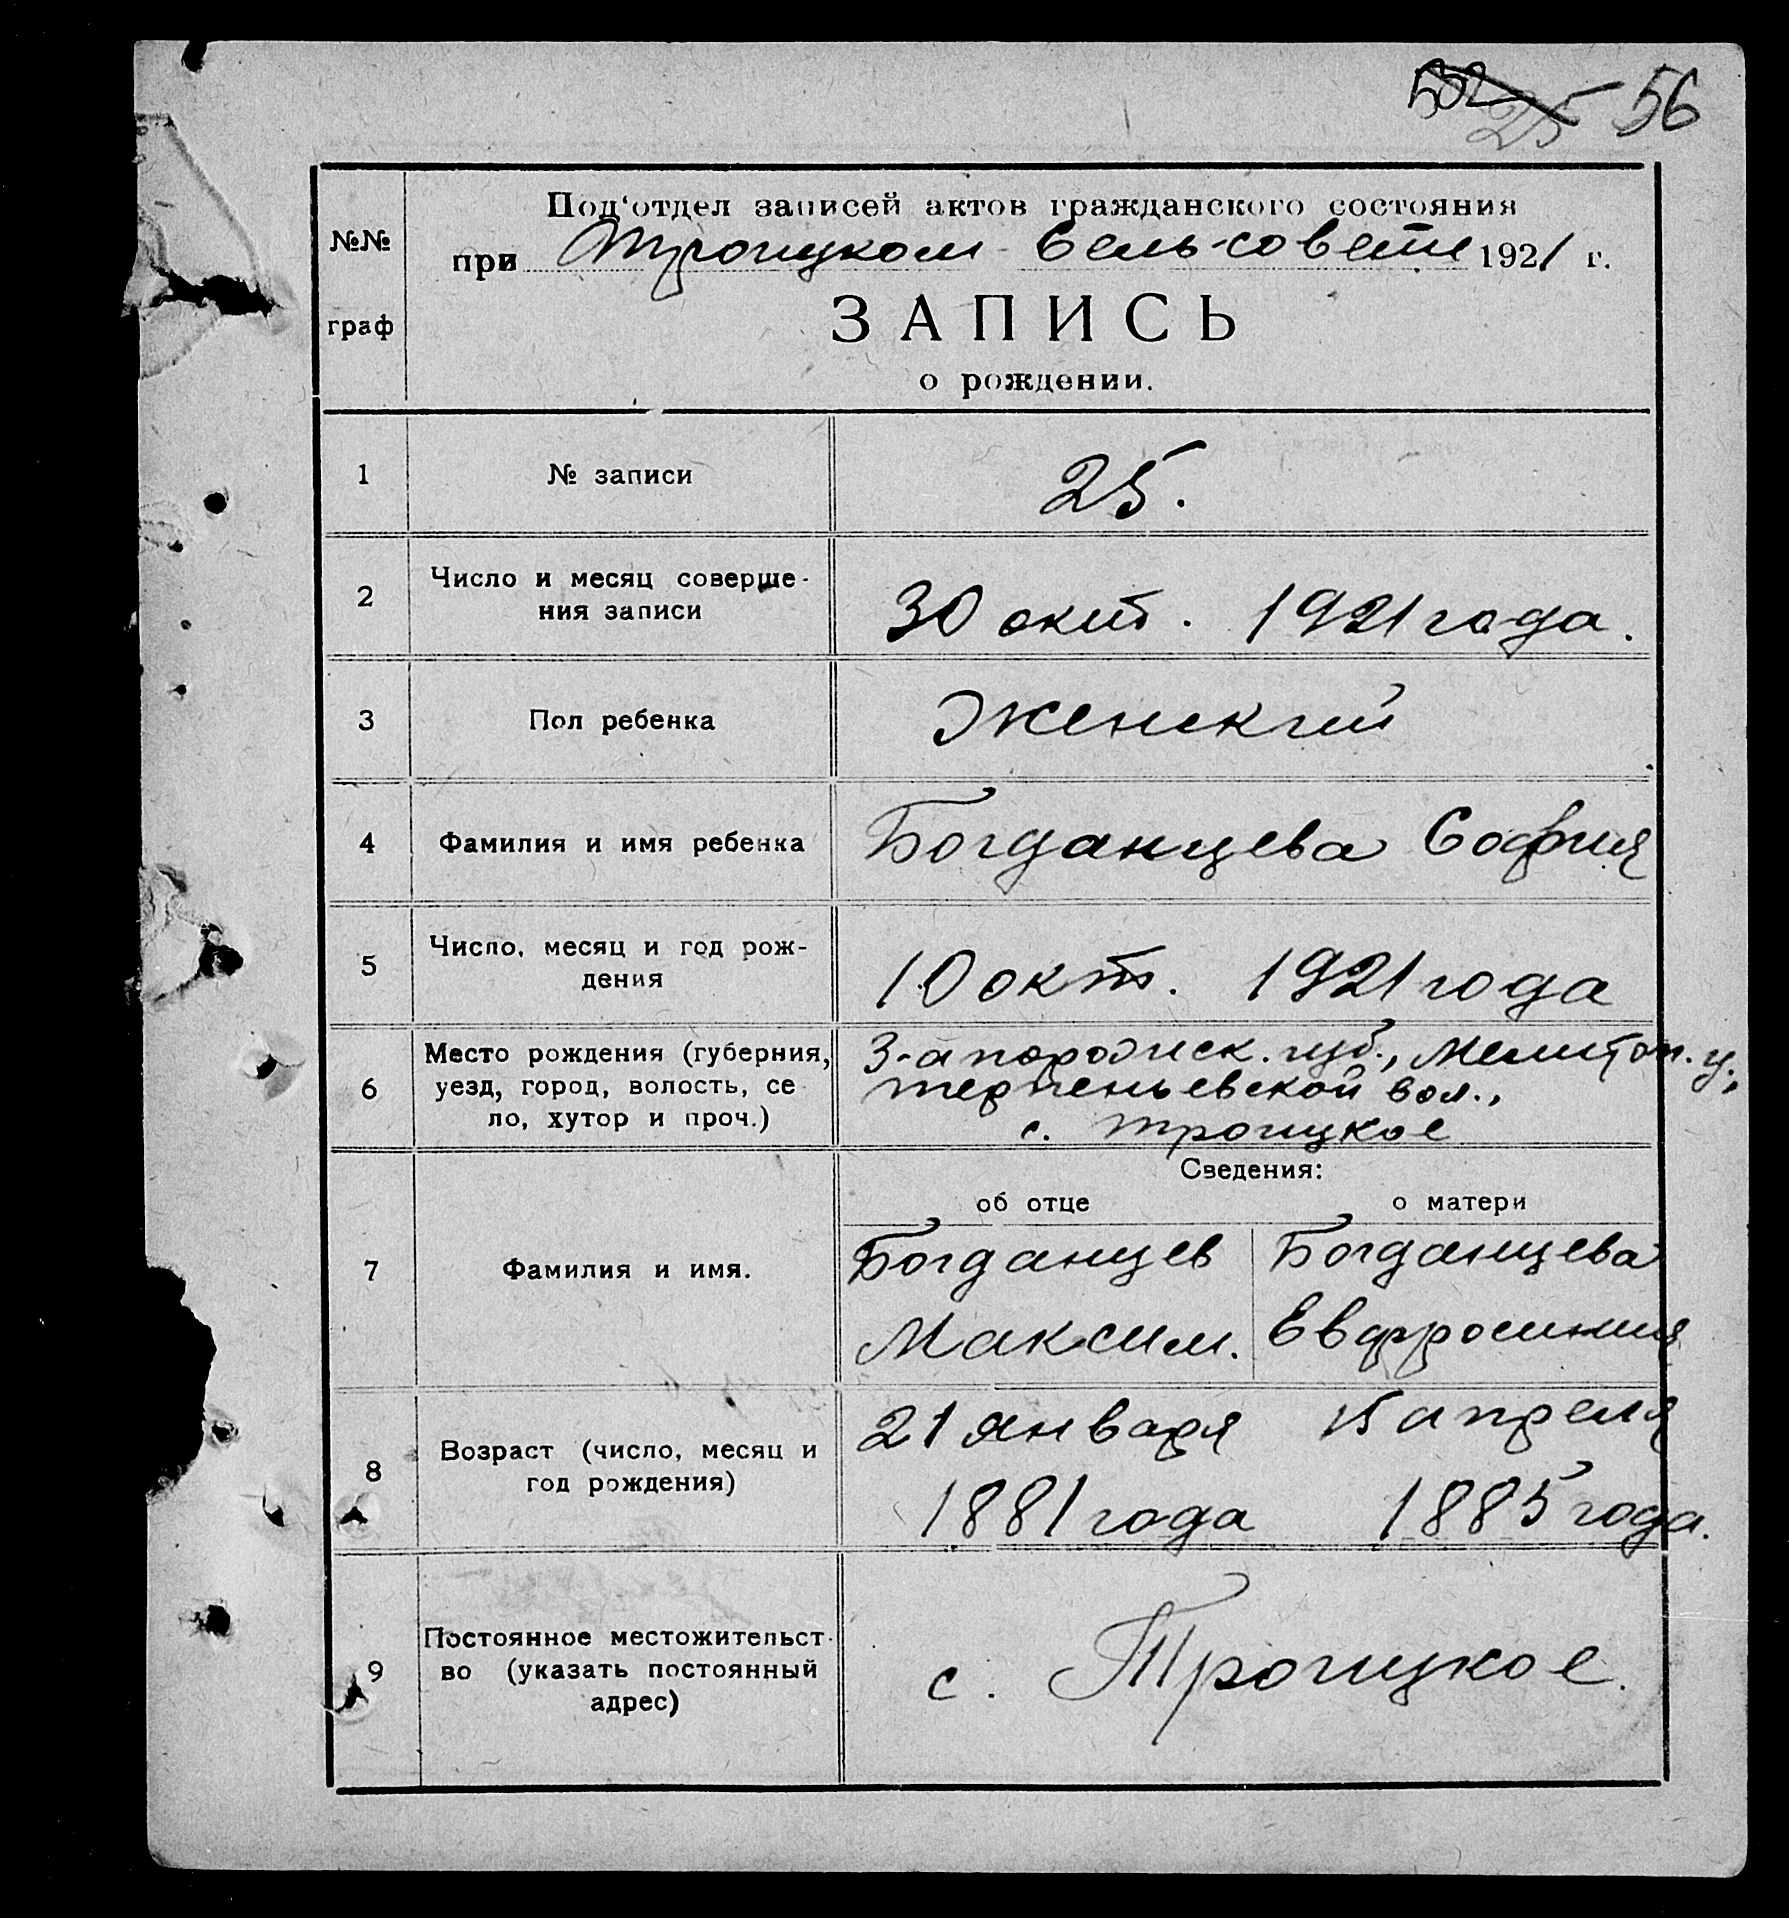 25 56
№№ граф
Под‘отдел записей актов гражданского состояния
при Троицком Сель-совете 1921 г.
ЗАПИСЬ
о рождении.
1 № записи 25.
2 Число и месяц соверше-
ния записи 30 окт. 1921 года.
3 Пол ребенка Женский
4 Фамилия и имя ребенка Богданцева София
5 Число, месяц и год рож-
дения 10 окт. 1921 года
6 Место рождения (губерния,
уезд, город, волость, се
ло, хутор и проч.)
З-апорожск. губ., Мелитоп. у.,
терпеньевской вол.,
с. троицкое
Сведения:
об отце о матери
7 Фамилия и имя.
Богданцев Богданцева
Максим. Евфросиния
8 Возраст (число, месяц и
год рождения)
21 января 15 апреля
1881 года 1885 года.
9 Постоянное местожительст-
во (указать постоянный
адрес)
с. Троицкое.